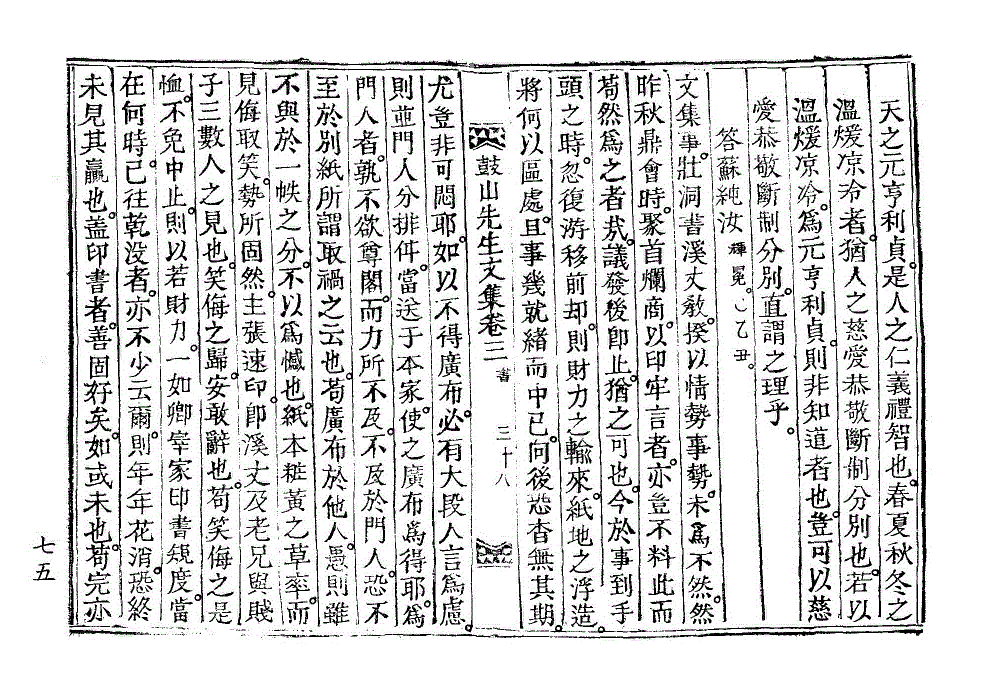 天之元亨利貞。是人之仁義禮智也。春夏秋冬之
溫煖凉冷者。猶人之慈愛恭敬斷制分別也。若以
溫煖凉冷。爲元亨利貞。則非知道者也。豈可以慈
愛恭敬斷制分別。直謂之理乎。
答蘇純汝 輝冕。○乙丑。
文集事。壯洞書溪丈敎。揆以情勢事勢。未爲不然。然
昨秋鼎會時。聚首爛商。以印牢言者。亦豈不料此而
苟然爲之者哉。議發後卽止。猶之可也。今於事到手
頭之時。忽復游移前却。則財力之輸來。紙地之浮造。
將何以區處。且事幾就緒而中已。向後恐杳無其期。
鼓山先生文集卷三 書 三十八
尤豈非可悶耶。如以不得廣布。必有大段人言爲慮。
則並門人分排件。當送于本家。使之廣布爲得耶。爲
門人者。孰不欲尊閣。而力所不及。不及於門人。恐不
至於別紙所謂取禍之云也。苟廣布於他人。愚則雖
不與於一帙之分。不以爲憾也。紙本粧黃之草率而
見侮取笑。勢所固然。主張速印。卽溪丈及老兄與賤
子三數人之見也。笑侮之歸。安敢辭也。苟笑侮之是
恤。不免中止。則以若財力。一如卿宰家印書規度。當
在何時。已往乾沒者。亦不少云爾。則年年花消。恐終
未見其贏也。盖印書者。善固好矣。如或未也。苟完亦
七五